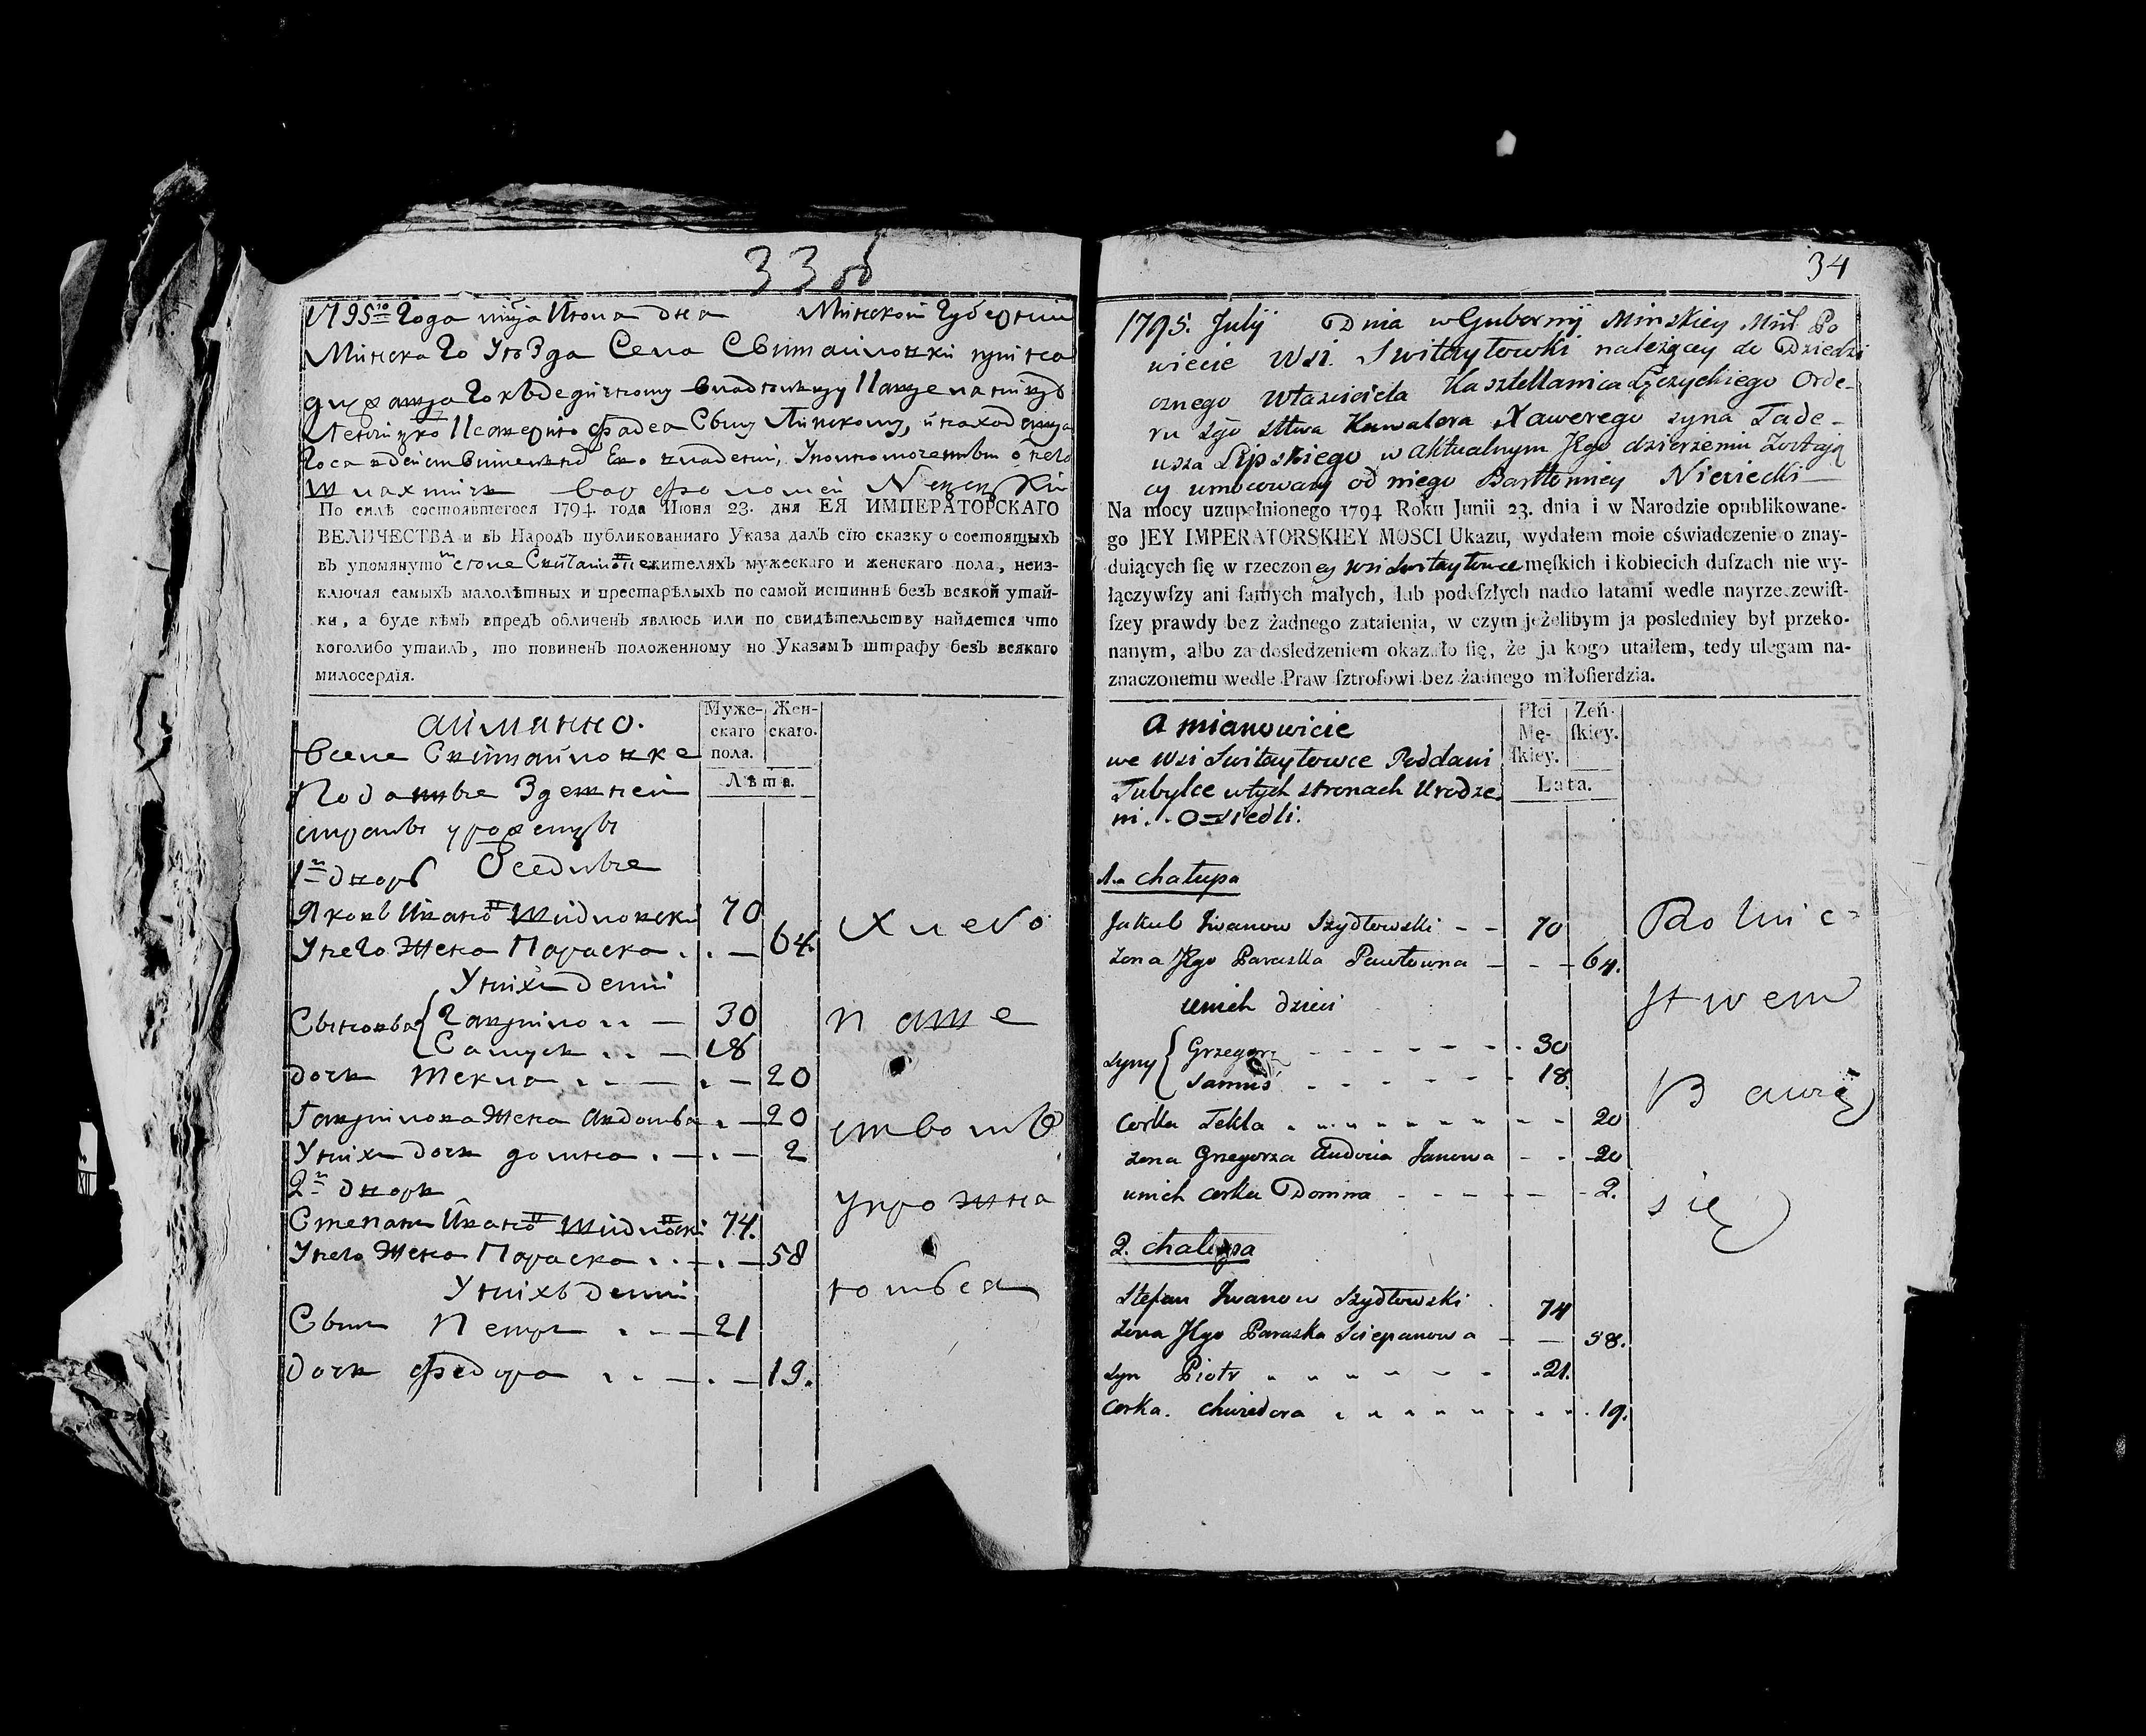 33 об
1795го Года мца Июля дня Минской Губернии
Минскаго Уѣзда Села Свитайловки
По силѣ состоявшегося 1794. года Июня 23. дня ЕЯ ИМПЕРАТОРСКАГО
ВЕЛИЧЕСТВА и въ Народъ публикованнаго Указа далъ сїю сказку о состоящыхъ
въ упомянутомъ селе Свитайловке жителяхъ мужескаго и женскаго пола, неиз-
ключая самыхъ малолѣтныхъ и престарѣлыхъ по самой истиннѣ безъ всякой утай-
ки, а буде кѣмъ впредъ обличенъ явлюсь или по свидѣтельству найдется что
коголибо утаилъ, то повиненъ положенному по Указамъ штрафу безъ всякаго
милосердїя.
аимянно.
Муже-
скаго
пола.
Жен-
скаго.
Лѣта.
Вселе Свитайловке
Здешней
стране
1й дворъ Оседлые
Яковъ Ивановъ Шидловски 70
Унего Жена Параска . . — 64.
Унихъ Дети
Сыновья { Гаврило .. — 30
Самусь .. — 18
дочь Текла . . — . — 20
Гаврилова Жена Авдотья . — 20
Унихъ дочь домна . — . — 2
2й дворъ
Степанъ Ивановъ Шидловски 74.
Унего Жена Параска . . — . — 58
Унихъ Дети
Сынъ Петръ . . — 21
дочь Федора . . — . — 19.
Хлебо
паше
ством
упражня
ются
34
1795. Julij Dnia w Gubernij Minskiey Minˡ Po
wiecie Wsi. Switaytowki należącey do Dziedzi
cznego Właściciela Kasztellanica Łęczyckiego Orde-
ru Sgo Kawalera Xawerego syna Tade-
usza Lipskiego w aktualnym Jego dzierzeniu zostają
cy umocowany od niego Bartłomiey Niewiecki
Na mocy uzupełnionego 1794 Roku Junii 23. dnia i w Narodzie opublikowane-
go JEY IMPERATORSKIEY MOSCI Ukazu, wydałem moie oświadczenie o znay-
duiących ſię w rzeczoney wsi Switaytowce męſkich i kobiecich duſzach nie wy-
łączywſzy ani ſamych małych, lub podeſzłych nadto latami wedle nayrzeczewiſt-
ſzey prawdy bez żadnego zataienia, w czym jeżelibym ja posledniey był przeko-
nanym, albo za dosledzeniem okazało ſię, że ja kogo utaiłem, tedy ulegam na-
znaczonemu wedle Praw ſztrofowi bez żadnego miłoſierdzia.
a mianowicie
Płci
Mę-
ſkiey.
Zeń-
ſkiey.
Lata.
we Wsi Switaytowce Poddani
Tubylce wtych stronach Urodze
ni . . Osiedli.
1. chałupa
Jakub Jwanow Szydłowski - - 70
żona Jego Paraska Pawłowna — - - 64.
unich dzieci
syny { Grzegorz - - - - - - 30
Samuś - - - - - - 18.
corka Tekla . . . . . . . - - 20
żona Grzegorza Audocia Janowa - - 20
unich corka Domna - - - - - - 2.
2. chałupa
Stefan Jwanow Szydłowski . 74
żona Jego Paraska Sciepanowa - — 58.
syn Piotr . . . . . . . 21.
corka. Chwiedora . . . . . . . . 19.
Rolnic=
stwem
Bawią
się